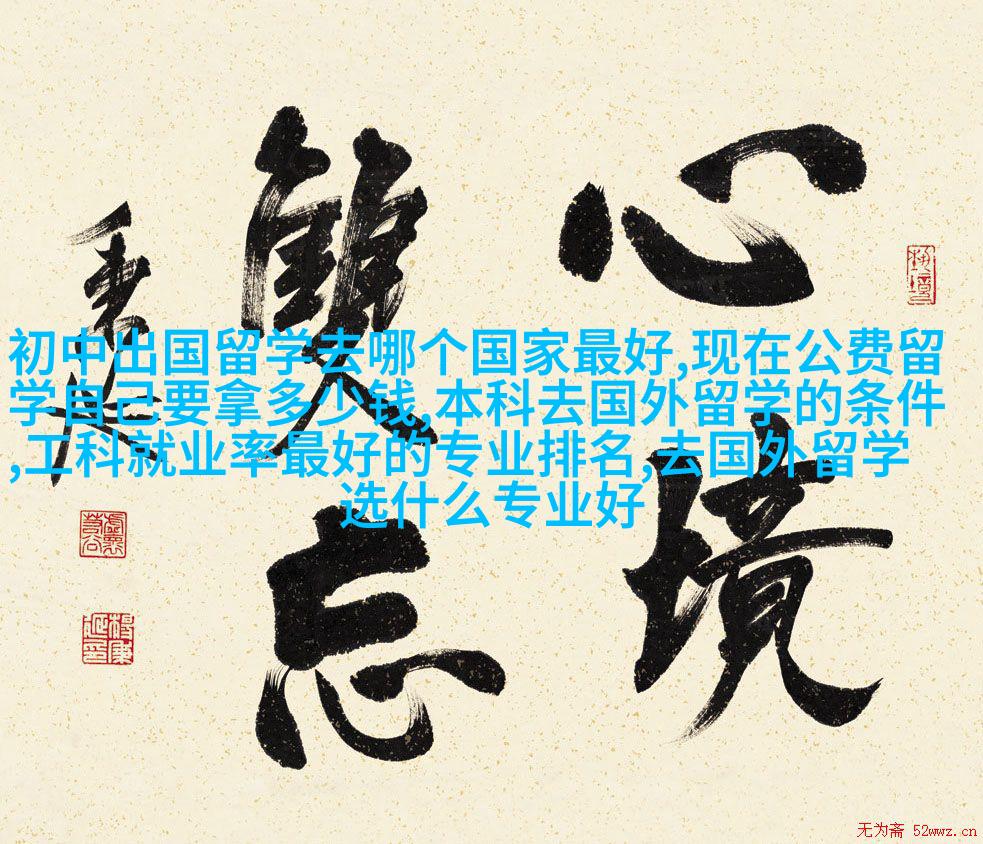 心境
雙忘
初中出国留学去哪个国家最好,现在公费留
学自己要拿多少钱,本科去国外留学的条件
,工科就业率最好的专业排名,去国外留学
选什么专业好
无为斋 52wwz.cn